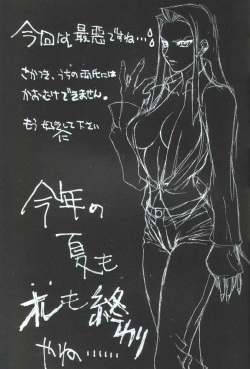 今回は最悪ですね…
さかさま、うちの両氏には
かおむけできません。
もう好きにして下さい
今年の
夏も
私も終わり
やねの……